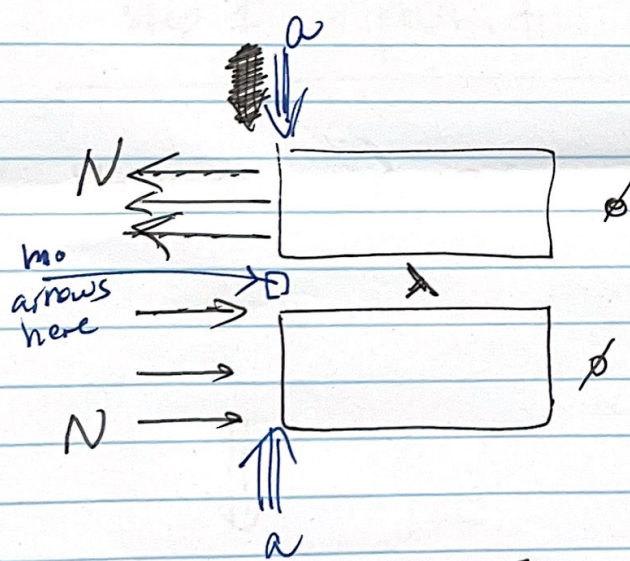 a
N
ø
no
arrows
here
λ
N
ø
a